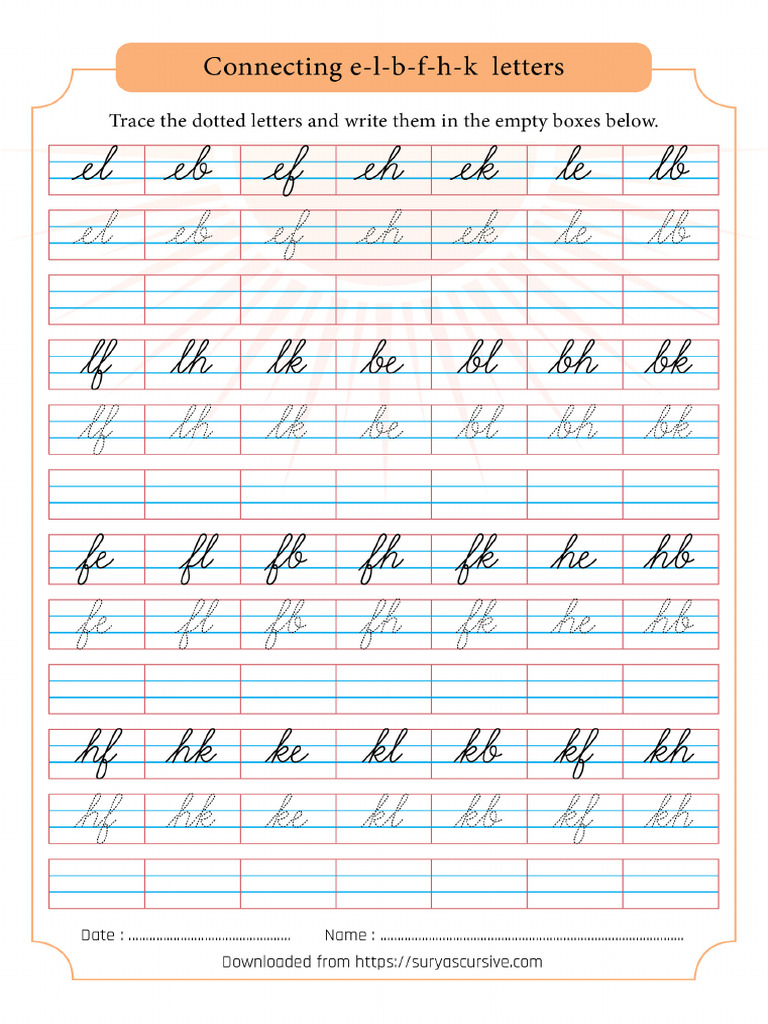 Connecting e-l-b-f-h-k letters
Trace the dotted letters and write them in the empty boxes below.
el eb ef eh ek le lb
el eb ef eh ek le lb
lf lh lk be bl bh bk
lf lh lk be bl bh bk
fe fl fb fh fk he hb
fe fl fb fh fk he hb
hf hk ke kl kb kf kh
hf hk ke kl kb kf kh
Date : ................................................ Name : ................................................................................
Downloaded from https://suryascursive.com